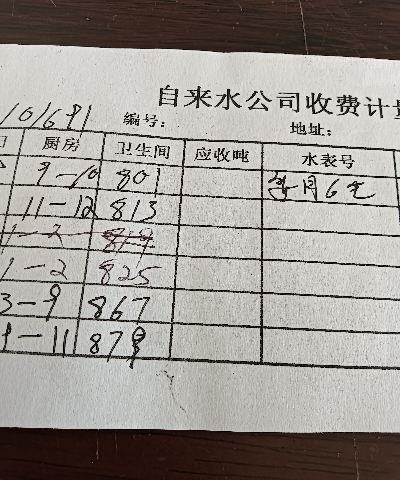 自来水公司收费计
101691 编号： 地址：
厨房 卫生间 应收吨 水表号
9-10 801 每月6元
11-12 813
1-2
1-2 825
3-9 867
9-11 879